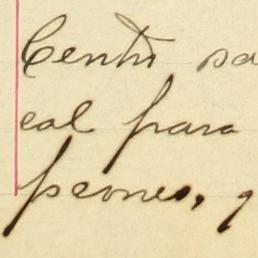 Centr sa
cal para
peones, q